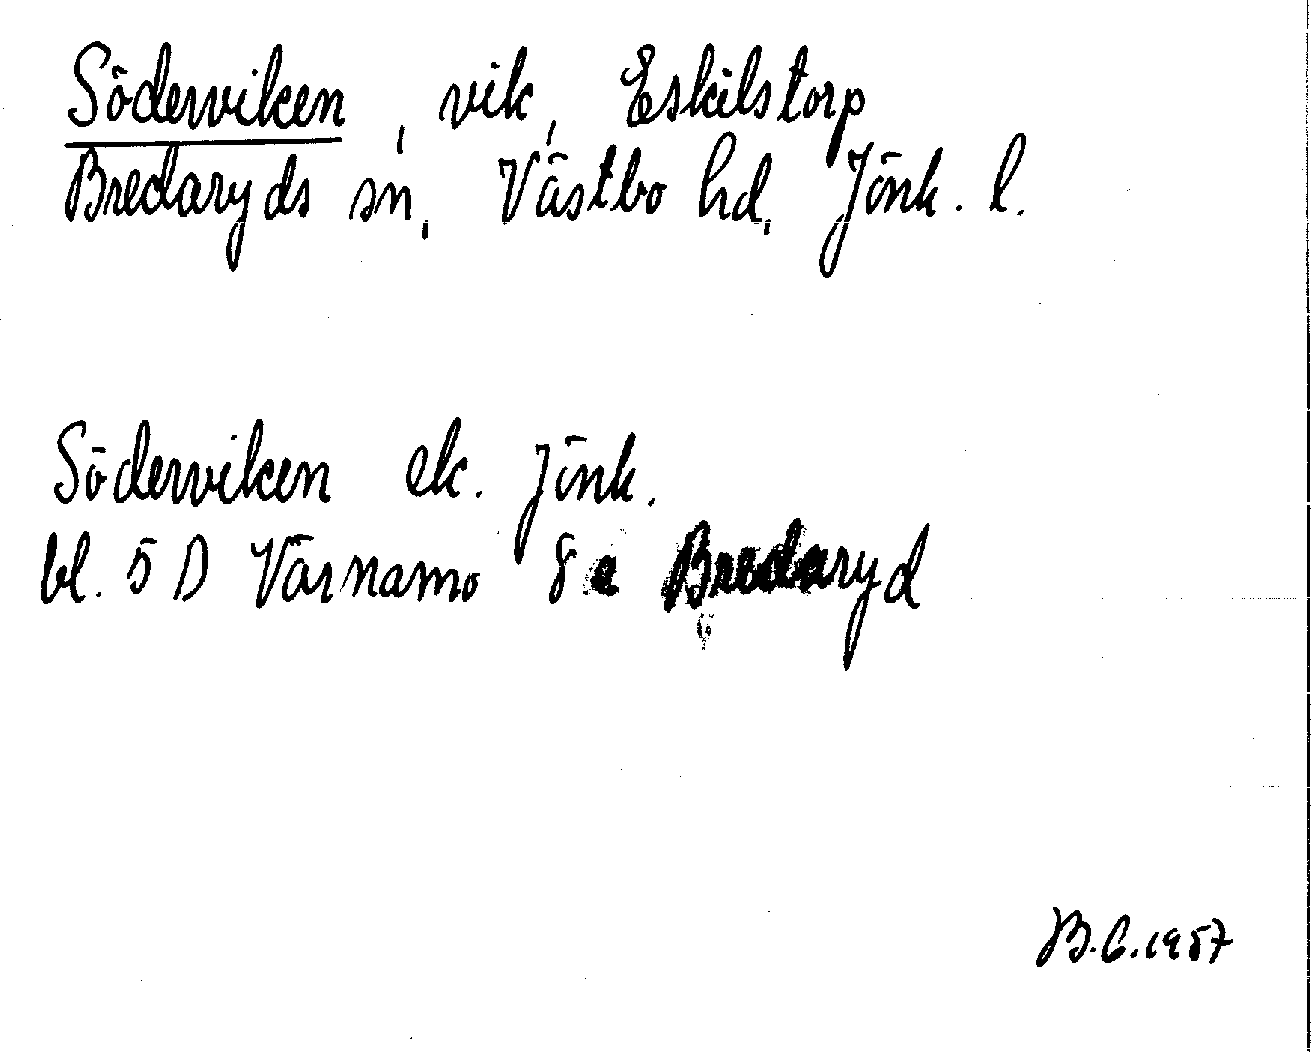 Söderviken, vik, Eskilstorp
Bredaryds sn, Västbo hd, Jönk. l.
Söderviken ek. Jönk.
bl. 5 D Värnamo 8 e Bredaryd
B.C. 1957